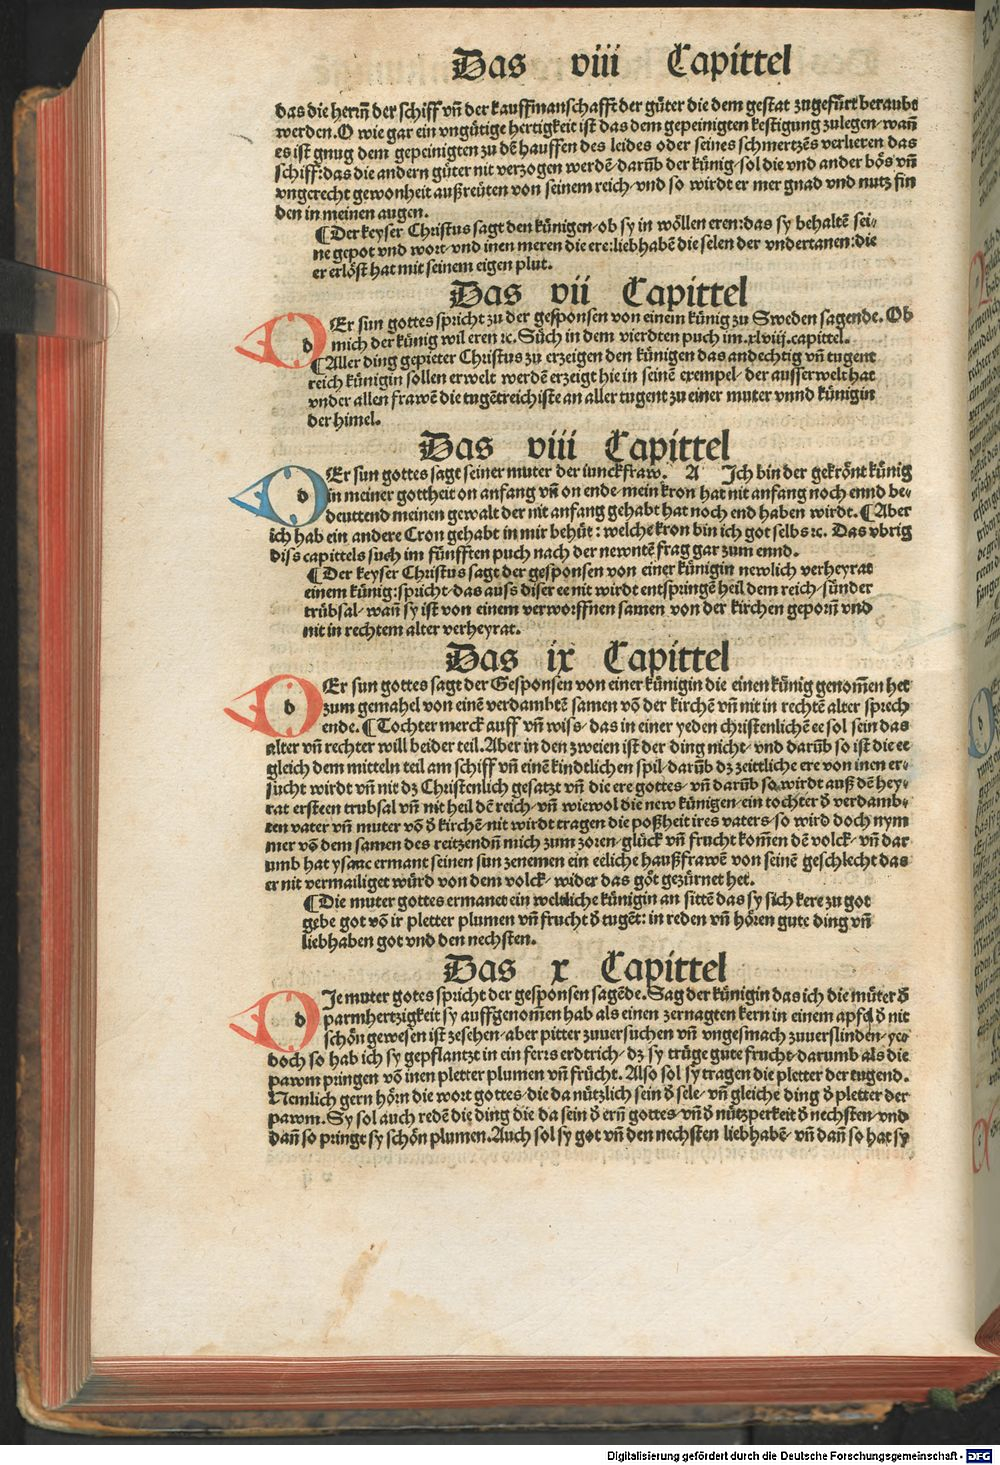 Das viii Capittel
das die herrn̄ der schiff vn̄ der kauffmanschafft der gůter die dem gestat zugefůrt beraubt
werden. O wie gar ein vngütige hertigkeit ist das dem gepeinigten kestigung zulegen/ wan̄
es ist gnug dem gepeinigten zu dē hauffen des leides oder seines schmertzēs verlieren das
schiff: das die andern güter nit verzogen werdē/ darūb der künig/ sol die vnd ander bös vn̄
vngerecht gewonheit außreüten von seinem reich/ vnd so wirdt er mer gnad vnd nutz fin
den in meinen augen.
¶ Der keyser Christus sagt den künigen/ ob sy in wöllen eren: das sy behaltē sei-
ne gepot vnd wort/ vnd inen meren die ere: liebhabēn die selen der vndertanen: die
er erlöst hat mit seinem eigen plut.
Das vii Capittel
dEr sun gottes spricht zu der gesponsen von einem künig zu Sweden sagende. Ob
mich der künig wil eren ꝛc. Sůch in dem vierdten puch im .xlviij. capittel.
¶ Aller ding gepieter Christus zu erzeigen den künigen das andechtig vn̄ tugent
reich künigin sollen erwelt werdē erzeigt hie in seinē exempel/ der ausserwelt hat
vnder allen frawē die tugētreichiste an aller tugent zu einer muter vnnd künigin
der himel.
Das viii Capittel
dEr sun gottes sagt seiner muter der iunckfraw. A Ich bin der gekrönt künig
in meiner gottheit on anfang vn̄ on ende/ mein kron hat nit anfang noch ennd be-
deuttend meinen gewalt der nit anfang gehabt hat noch end haben wirdt. ¶ Aber
ich hab ein andere Cron gehabt in mir behüt: welche kron bin ich got selbs ꝛc. Das vbrig
diss capittels such im fünfften puch nach der newntē frag gar zum ennd.
¶ Der keyser Christus sagt der gesponsen von einer künigin newlich verheyrat
einem künig: spricht/ das auss diser ee nit wirdt entspringē heil dem reich/ sünder
trübsal/ wan̄ sy ist von einem verworffnen samen von der kirchen geporn̄ vnd
nit in rechtem alter verheyrat.
Das ix Capittel
dEr sun gottes sagt der Gesponsen von einer künigin die einen künig genom̄en het
zum gemahel von einē verdambtē samen vō der kirchē vn̄ nit in rechtē alter sprech
ende. ¶ Tochter merck auff vn̄ wiss/ das in einer yeden christenlichē ee sol sein das
alter vn̄ rechter will beider teil. Aber in den zweien ist der ding nicht/ vnd darūb so ist die ee
gleich dem mitteln teil am schiff vn̄ einē kindtlichen spil/ darūb dz zeittliche ere von inen er-
sucht wirdt vn̄ nit dz Christenlich gesatzt vn̄ die ere gottes/ vn̄ darūb so wirdt auß dē hey-
rat ersteen trubsal vn̄ nit heil dē reich/ vn̄ wiewol die new künigen/ ein tochter ď verdamb-
ten vater vn̄ muter vō ď kirchē/ nit wirdt tragen die poßheit ires vaters/ so wird doch nym
mer vō dem samen des reitzendn̄ mich zum zoren/ glück vn̄ frucht kom̄en dē volck/ vn̄ dar
umb hat ysaac ermant seinen sun zenemen ein eeliche haußfrawē von seinē geschlecht das
er nit vermailiget würd von dem volck/ wider das got gezürnet het.
¶ Die muter gottes ermanet ein weltliche künigin an sittē das sy sich kere zu got
gebe got vō ir pletter plumen vn̄ frucht ď tugēt: in reden vn̄ hören gute ding vn̄
liebhaben got vnd den nechsten.
Das x Capittel
dIe muter gotes spricht der gesponsen sagēde. Sag der künigin das ich die můter ď
parmhertzigkeit sy auffgenom̄en hab als einen zernagten kern in einem apfel ď nit
schön gewesen ist zesehen/ aber pitter zuuersuchen vn̄ vngesmach zuuerslinden/ yeo
doch so hab ich sy gepflantzt in ein ferts erdtrich/ dz sy trüge gute frucht/ darumb als die
pawm pringen vō inen pletter plumen vn̄ frücht. Also sol sy tragen die pletter der tugend.
Nemlich gern hörn die wort gottes/ die da nützlich sein ď sele/ vn̄ gleiche ding ď pletter der
pawm. Sy sol auch redē die ding die da sein ď ern̄ gottes/ vn̄ ď nützperkeit ď nechsten/ vnd
dan̄ so pringt sy schön plumen. Auch sol sy got vn̄ den nechsten liebhabē/ vn̄ dan̄ so hat sy
Digitalisierung gefördert durch die Deutsche Forschungsgemeinschaft - DFG